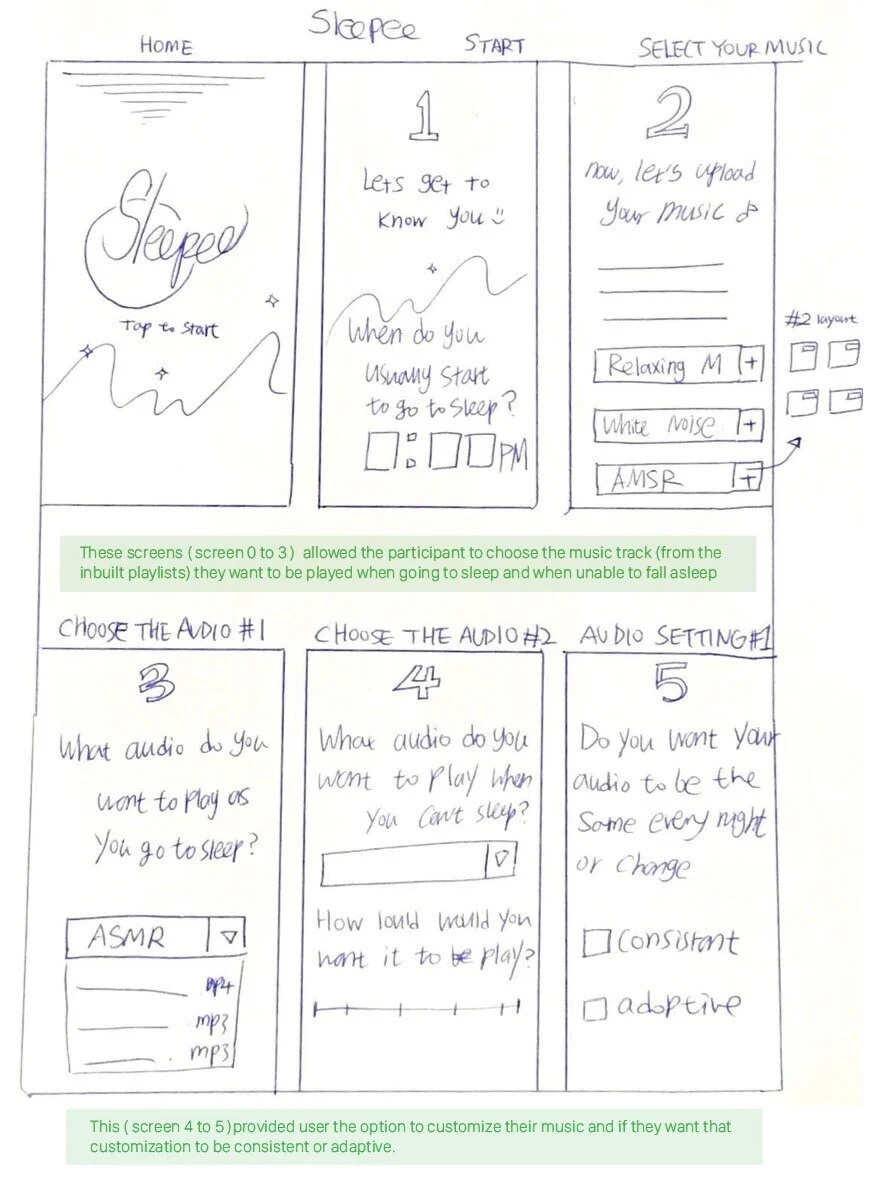 Sleepee
HOME
START
SELECT YOUR MUSIC
Sleepee
Tap to start
1
Lets get to
know you
When do you
usually start
to go to sleep?
PM
2
now, let's upload
your music
Relaxing M +
White Noise +
AMSR +
#2 layout
These screens ( screen 0 to 3 ) allowed the participant to choose the music track (from the
inbuilt playlists) they want to be played when going to sleep and when unable to fall asleep
CHOOSE THE AUDIO #1
CHOOSE THE AUDIO #2
AUDIO SETTING #1
3
What audio do you
want to play as
you go to sleep?
ASMR
mp4
mp3
mp3
4
What audio do you
want to play when
you can't sleep?
How loud would you
want it to be play?
5
Do you want your
audio to be the
Same every night
or change
Consistant
adaptive
This ( screen 4 to 5 )provided user the option to customize their music and if they want that
customization to be consistent or adaptive.